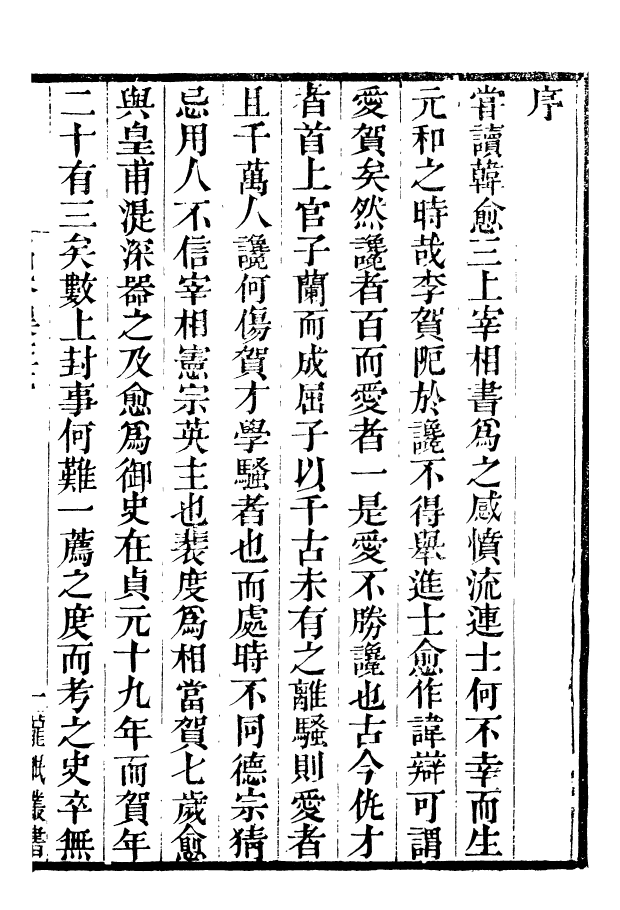 序
嘗讀韓愈三上宰相書爲之感憤流連士何不幸而生
元和之時哉李賀阨於讒不得舉進士愈作諱辯可謂
愛賀矣然讒者百而愛者一是愛不勝讒也古今仇才
者首上官子蘭而成屈子以千古未有之離騷則愛者
且千萬人讒何傷賀才學騷者也而處時不同德宗猜
忌用人不信宰相憲宗英主也裴度爲相當賀七歲愈
與皇甫湜深器之及愈爲御史在貞元十九年而賀年
二十有三矣數上封事何難一薦之度而考之史卒無
一
叢書